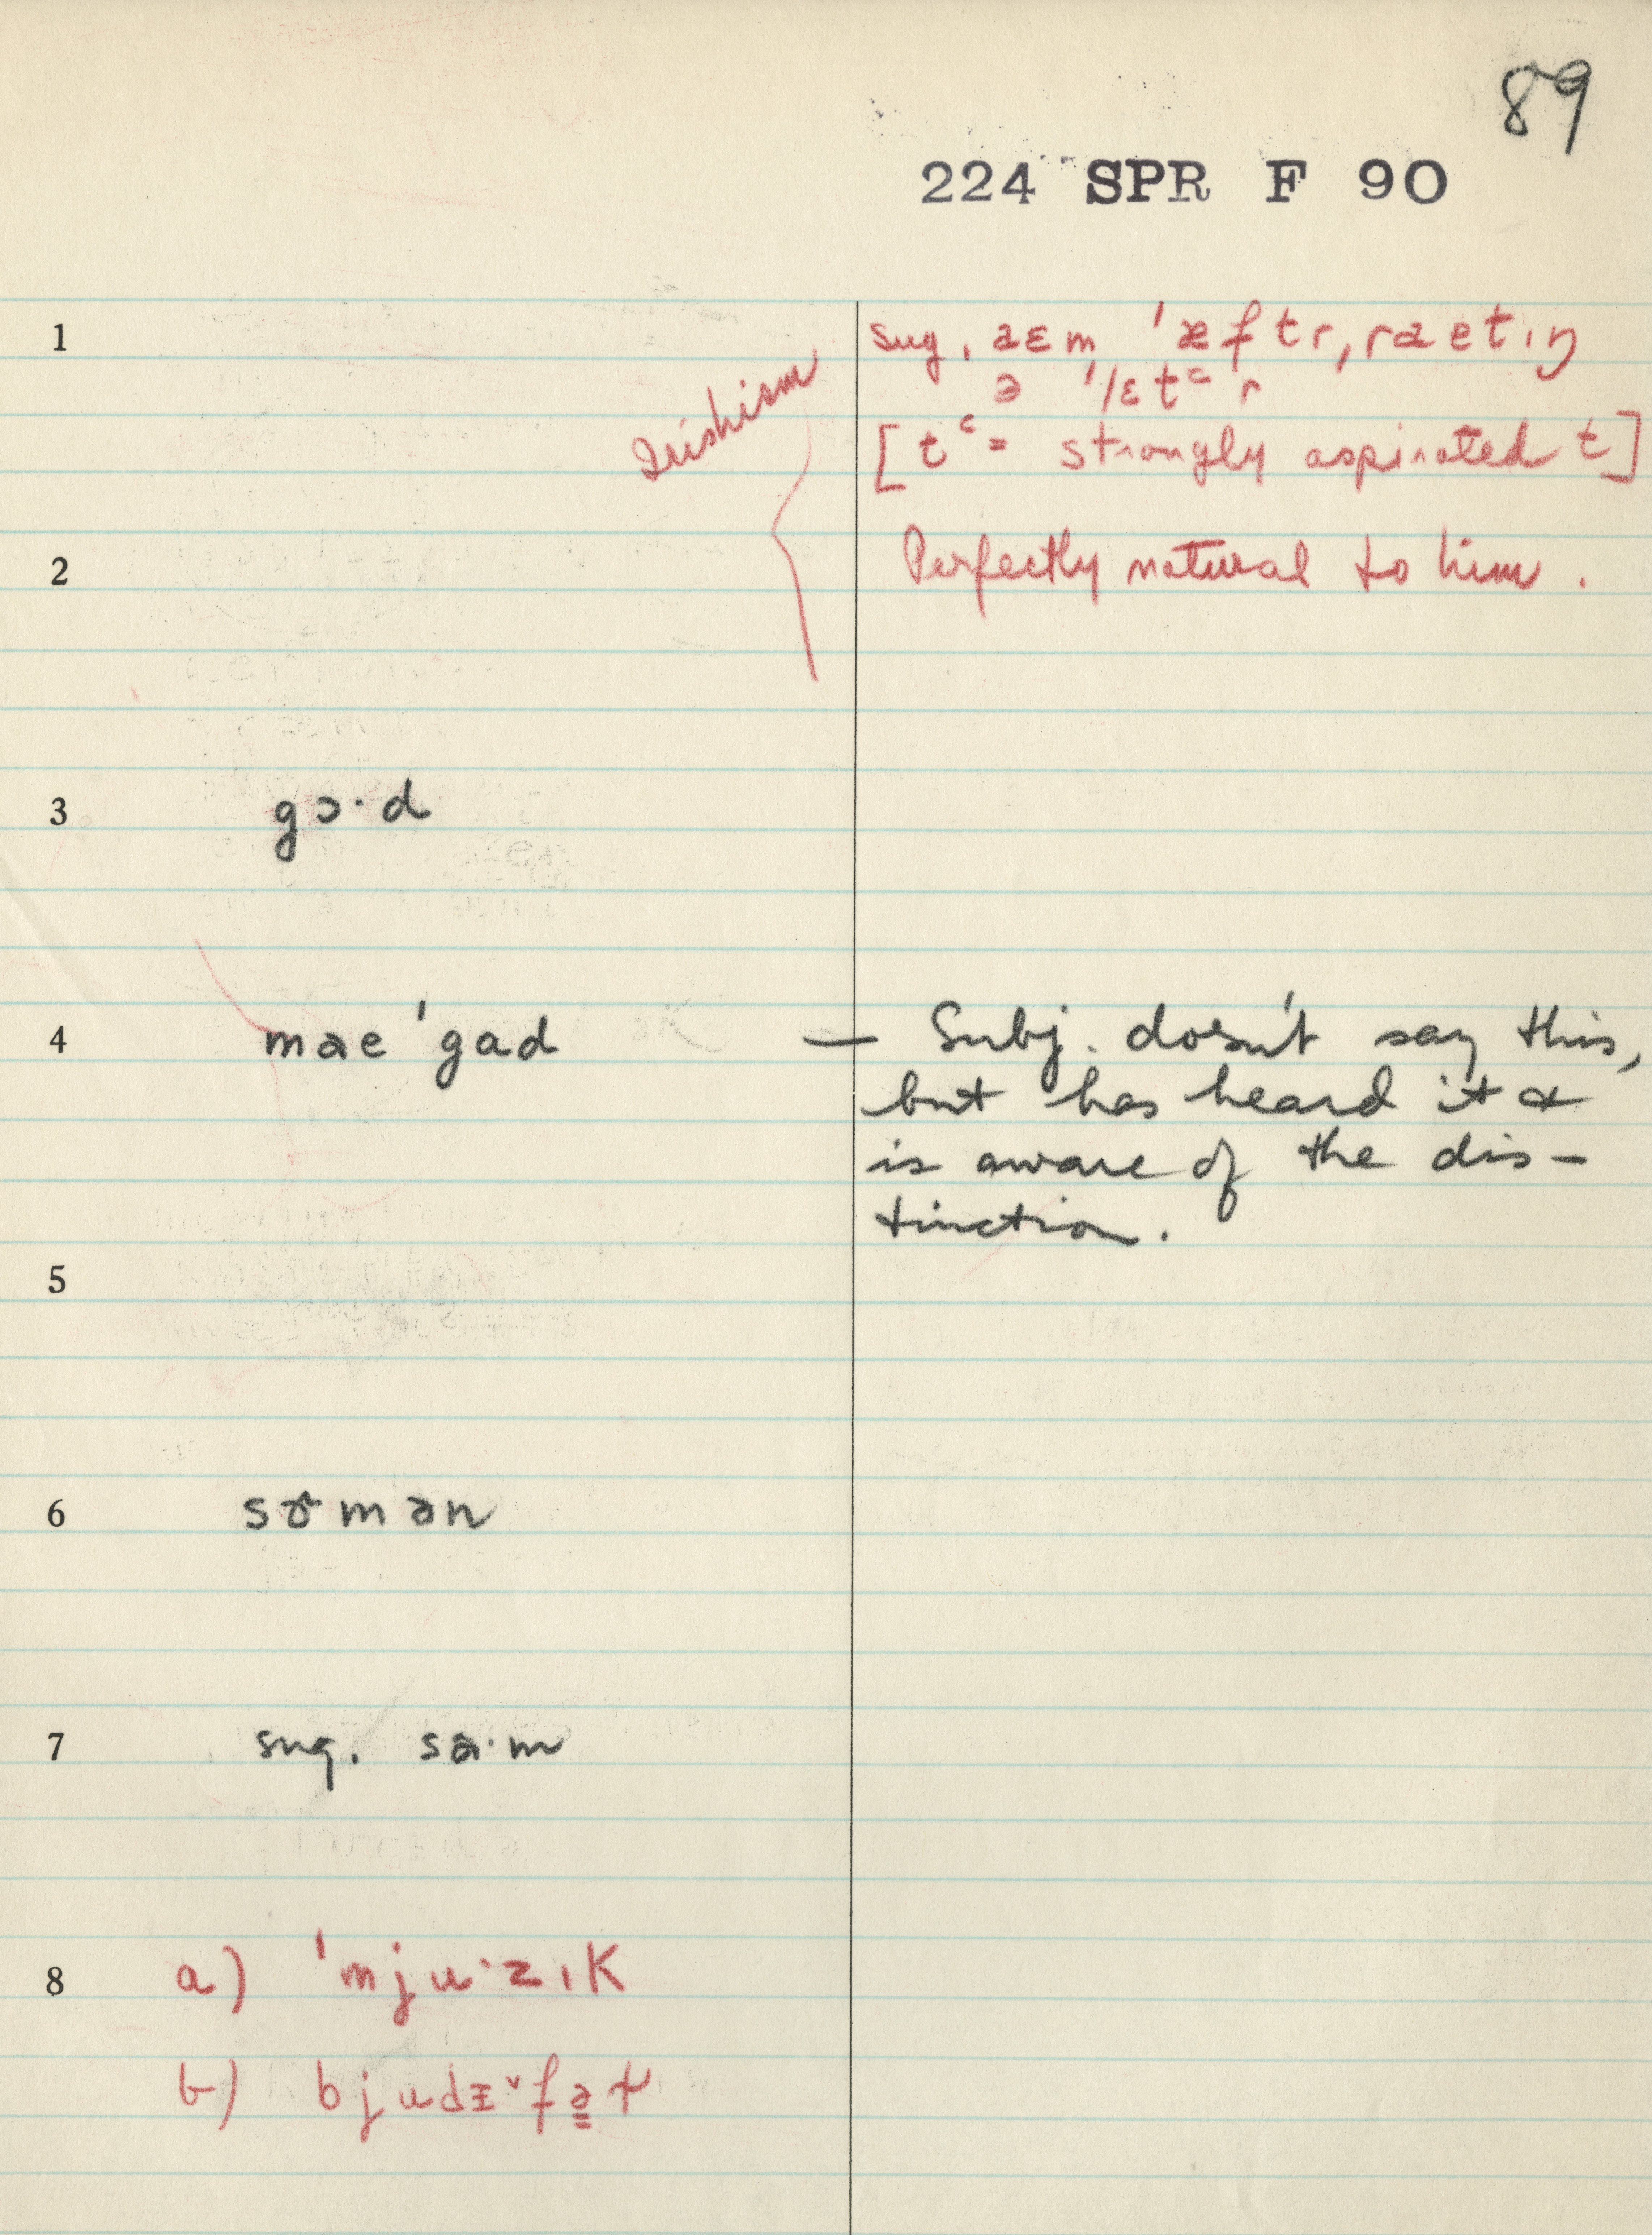 89
224 SPR F 90
1 sug. aɛm 'æftr, raetıŋ
ə 'lɛtᶜ r
Irishism
[tᶜ = strongly aspirated t]
2 Perfectly natural to him.
3 gɔ·d
4 mae 'gad — Subj. doesn't say this,
but has heard it &
is aware of the dis-
tinction.
5
6 mən
7 sug. sa·m
8 a) 'mju·zık
b)